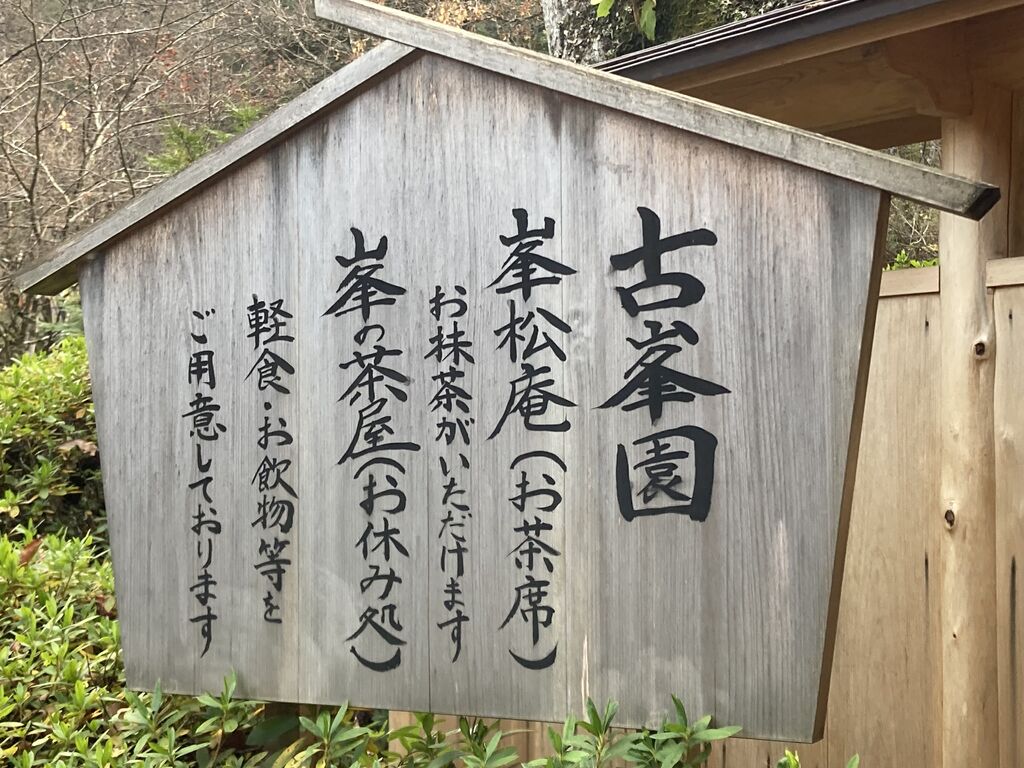 古峯園
峯松庵(お茶席)
お抹茶がいただけます
峯の茶屋(お休み処)
軽食・お飲物等を
ご用意しております